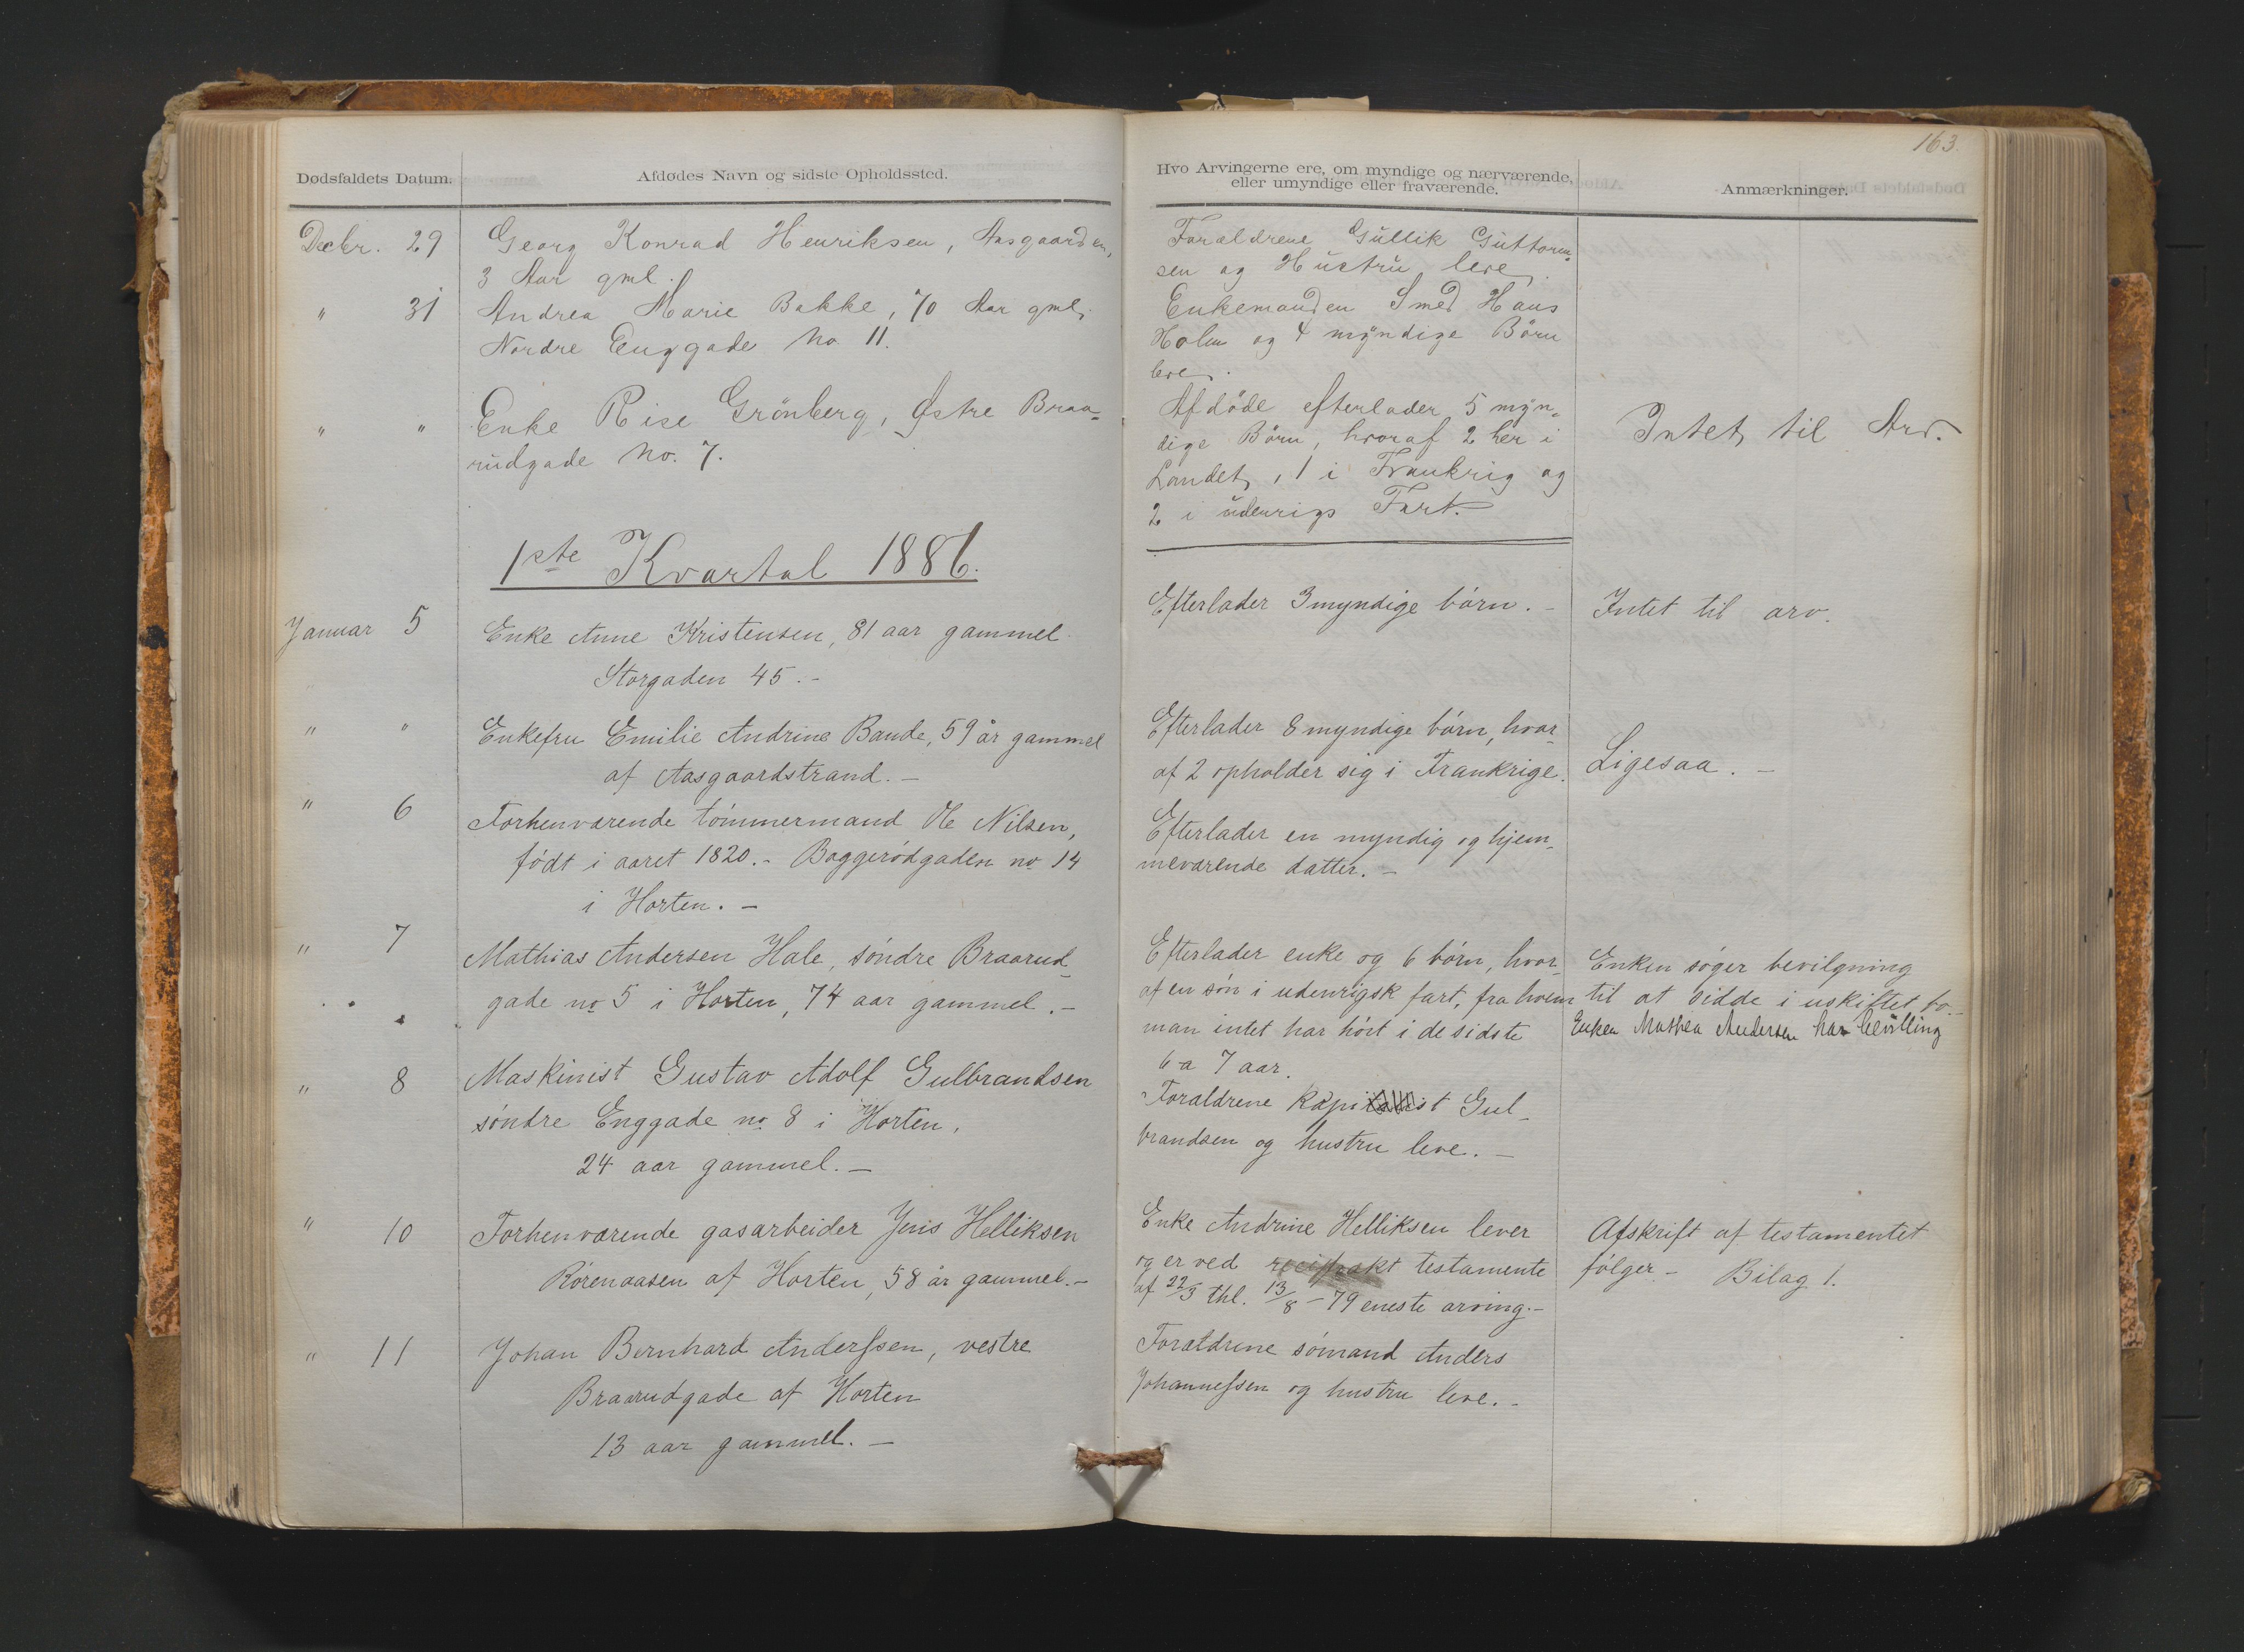 163.
Dødsfaldets Datum.
Afdødes Navn og sidste Opholdssted.
Hvo Arvingerne ere, om myndige og nærværende,
eller umyndige eller fraværende.
Anmærkninger.
Decbr. 29
Georg Konrad Henriksen, Aasgaarden,
3 Aar gml.
Forældrene Gullik Guttorm-
sen og Hustru leve.
" 31
Andrea Marie Bakke, 70 Aar gml,
Nordre Enggade No 11.
Enkemanden Smed Hans
Holm og 4 myndige Børn
leve.
" "
Enke Rise Grönberg, Østre Braa-
rudgade No. 7.
Afdöde efterlader 5 myn-
dige Börn, hvoraf 2 her i
Landet, 1 i Frankrig og
2 i udenrigs Fart.
Intet til Arv.
1ste Kvartal 1886.
Januar 5
Enke Anne Kristensen, 81 aar gammel
Storgaden 45.-
Efterlader 3 myndige børn. -
Intet til arv.
" "
Enkefru Emilie Andrine Baude, 59 år gammel
af Aasgaardstrand. -
Efterlader 8 myndige børn, hvor-
af 2 opholder sig i Frankrige.
Ligesaa. -
" 6
Forhenværende tømmermand Ole Nilsen,
født i aaret 1820. - Baggerødgaden no 14
i Horten. -
Efterlader en myndig og hjem-
meværende datter. -
" 7
Mathias Andersen Hale, søndre Braarud-
gade no 5 i Horten, 74 aar gammel. -
Efterlader enke og 6 børn, hvor-
af en søn i udenrigsk fart, fra hvem
man intet har hørt i de sidste
6 a 7 aar.
Enken søger bevilgning
til at sidde i uskiftet bo.-
Enken Mathea Andersen har bevilling
" 8
Maskinist Gustav Adolf Gulbrandsen
søndre Enggade no 8 i Horten,
24 aar gammel. -
Forældrene Gul-
brandsen og hustru leve. -
" 10
Forhenværende gasarbeider Jens Helliksen
Rørenaasen af Horten, 58 år gammel. -
Enke Andrine Helliksen lever
og er ved testamente
af 22/3 thl. 13/8 - 79 eneste arving. -
Afskrift af testamentet
følger - Bilag 1.
" 11
Johan Bernhard Anderssen, vestre
Braarudgade af Horten
13 aar gammel. -
Forældrene sømand Anders
Johannessen og hustru leve. -